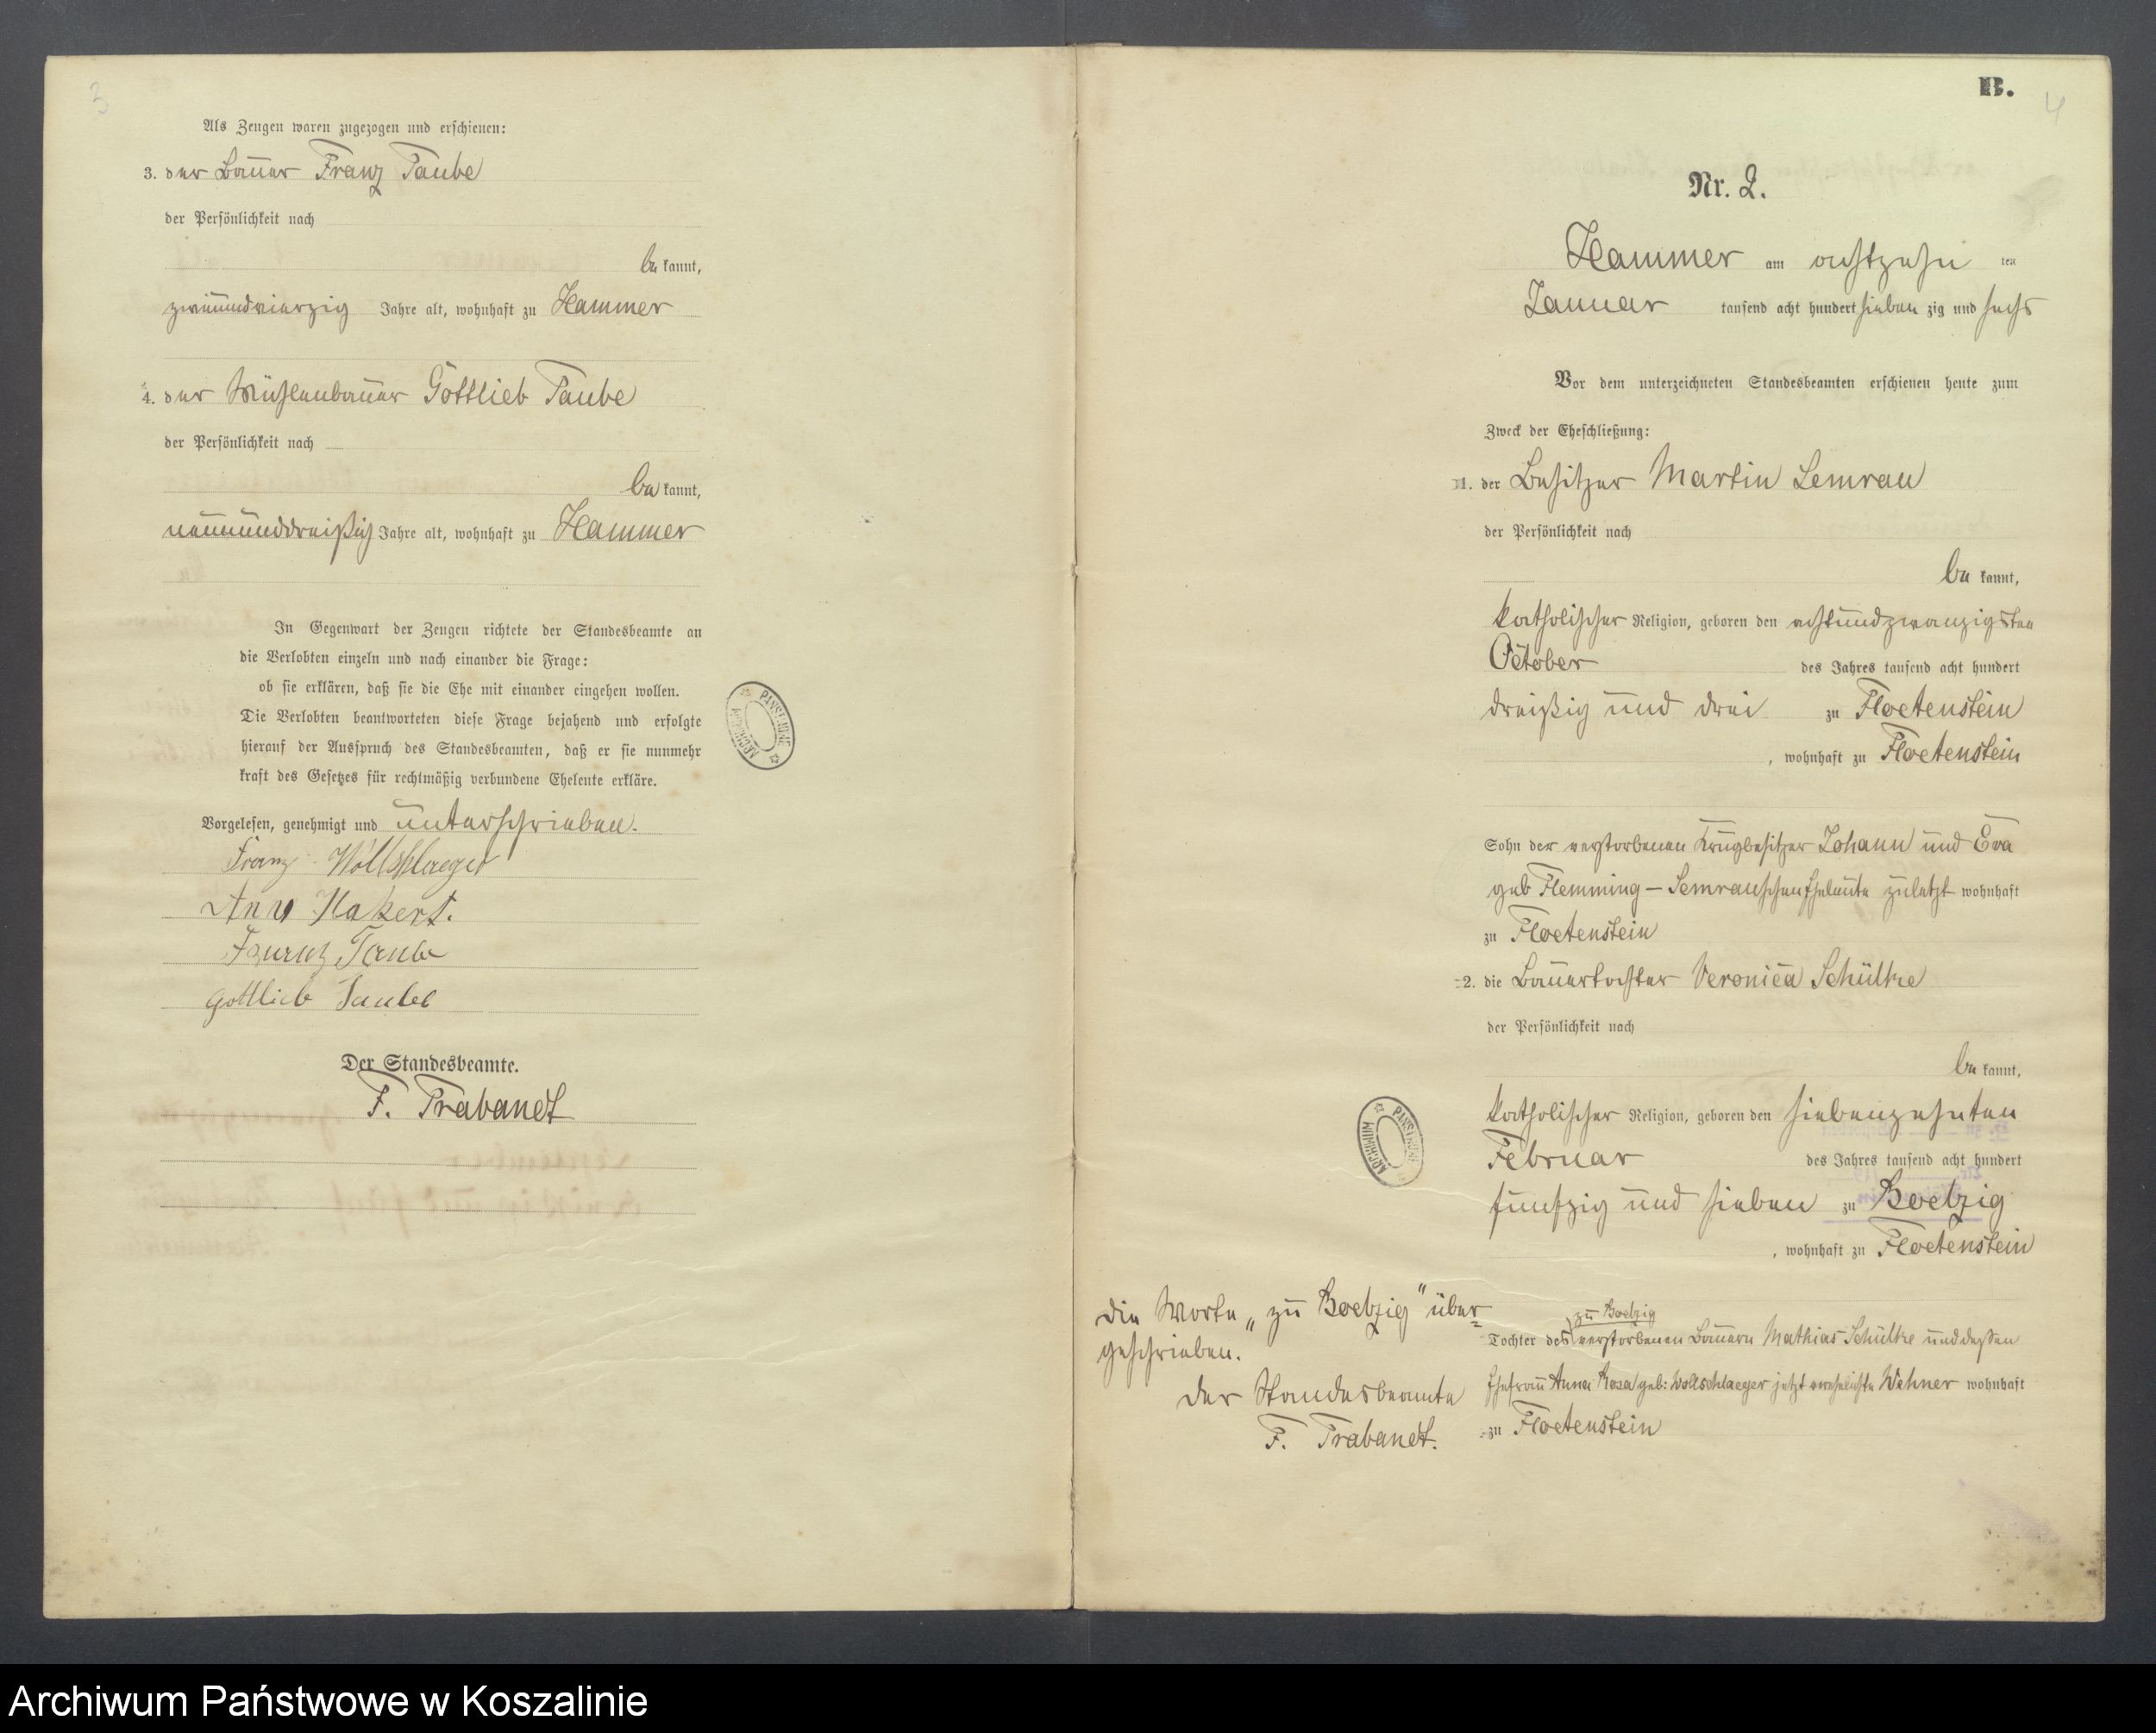 3
Als Zeugen waren zugezogen und erschienen:
3. der Bauer Franz Taube
der Persönlichkeit nach
be kannt,
zweiundvierzig Jahre alt, wohnhaft zu Hammer
4. der Mühlenbauer Gottlieb Taube
der Persönlichkeit nach
be kannt,
neununddreißig Jahre alt, wohnhaft zu Hammer
In Gegenwart der Zeugen richtete der Standesbeamte an
die Verlobten einzeln und nach einander die Frage:
ob sie erklären, daß sie die Ehe mit einander eingehen wollen.
Die Verlobten beantworteten diese Frage bejahend und erfolgte
hierauf der Ausspruch des Standesbeamten, daß er sie nunmehr
kraft des Gesetzes für rechtmäßig verbundene Eheleute erkläre.
Vorgelesen, genehmigt und unterschrieben.
Franz Wollschlaeger
Anna Hakert.
Franz Taube
Gottlieb Taube
Der Standesbeamte.
F. Trabandt
B.
4
Nr. 2.
Hammer am achtzehn ten
Januar tausend acht hundert sieben zig und sechs
Vor dem unterzeichneten Standesbeamten erschienen heute zum
Zweck der Eheschließung:
1. der Besitzer Martin Semrau
der Persönlichkeit nach
be kannt,
katholischer Religion, geboren den achtundzwanzigsten
October des Jahres tausend acht hundert
dreißig und drei zu Floetenstein
, wohnhaft zu Floetenstein
Sohn der verstorbenen Krugbesitzer Johann und Eva
geb Flemming – Semrauschen Eheleute zuletzt wohnhaft
zu Floetenstein
2. die Bauertochter Veronica Schültke
der Persönlichkeit nach
be kannt,
katholischer Religion, geboren den siebenzehnten
Februar des Jahres tausend acht hundert
fünfzig und sieben zu Boelzig
, wohnhaft zu Floetenstein
zu Boelzig
Tochter des verstorbenen Bauern Mathias Schültke und dessen
Ehefrau Anna Rosa geb: Wollschlaeger jetzt verehelichte Wehner wohnhaft
zu Floetenstein
Die Worte „zu Boelzig" über=
geschrieben.
Der Standesbeamte
F. Trabandt.
Archiwum Państwowe w Koszalinie